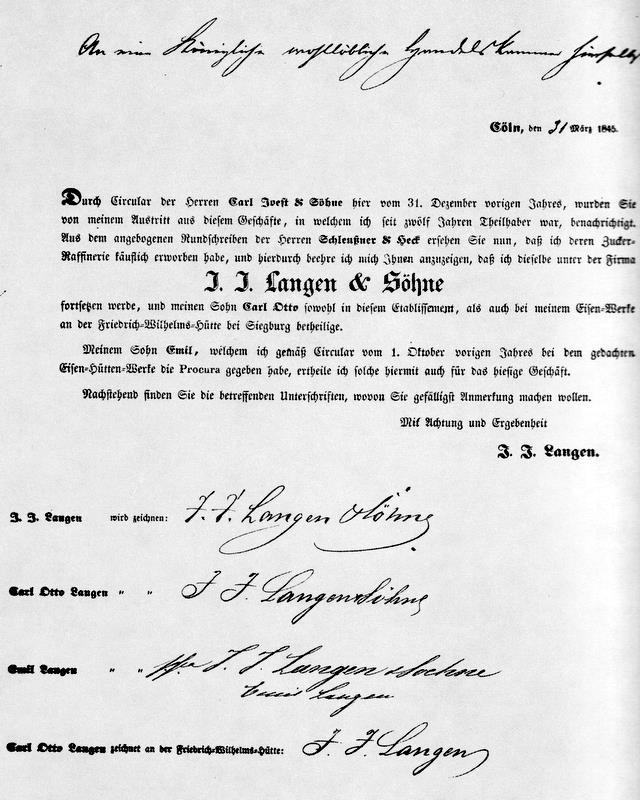 An eine Königliche wohllöbliche Handelskammer hieselbst
Cöln, den 31 März 1845.
Durch Circular der Herren Carl Joest & Söhne hier vom 31. Dezember vorigen Jahres, wurden Sie
von meinem Austritt aus diesem Geschäfte, in welchem ich seit zwölf Jahren Theilhaber war, benachrichtigt.
Aus dem angebogenen Rundschreiben der Herren Schleußner & Heck ersehen Sie nun, daß ich deren Zucker-
Raffinerie käuflich erworben habe, und hierdurch beehre ich mich Ihnen anzuzeigen, daß ich dieselbe unter der Firma
J. J. Langen & Söhne
fortsetzen werde, und meinen Sohn Carl Otto sowohl in diesem Etablissement, als auch bei meinem Eisen-Werke
an der Friedrich-Wilhelms-Hütte bei Siegburg betheilige.
Meinem Sohn Emil, welchem ich gemäß Circular vom 1. Oktober vorigen Jahres bei dem gedachten
Eisen-Hütten-Werke die Procura gegeben habe, ertheile ich solche hiermit auch für das hiesige Geschäft.
Nachstehend finden Sie die betreffenden Unterschriften, wovon Sie gefälligst Anmerkung machen wollen.
Mit Achtung und Ergebenheit
J. J. Langen.
J. J. Langen wird zeichnen: J. J. Langen & Söhne
Carl Otto Langen " " J J Langen & Söhne
Emil Langen " " ppa J. J. Langen & Soehne
Emil Langen
Carl Otto Langen zeichnet an der Friedrich-Wilhelms-Hütte: J. J. Langen